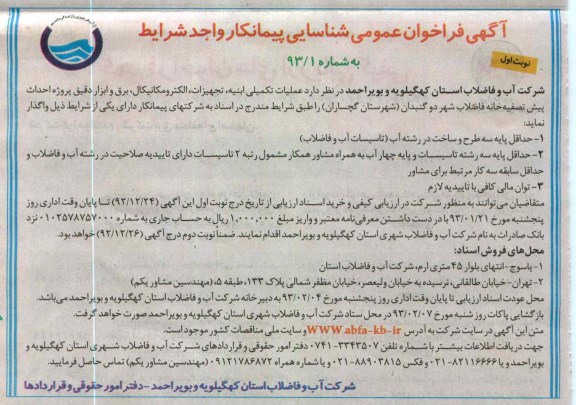 آگهی فراخوان عمومی شناسایی پیمانکار واجد شرایط
به شماره ۹۳/۱
نوبت اول
شرکت آب و فاضلاب استان کهگیلویه و بویراحمد در نظر دارد عملیات تکمیلی ابنیه، تجهیزات، الکترومکانیکال، برق و ابزار دقیق پروژه احداث
پیش تصفیه‌خانه فاضلاب شهر دو گنبدان (شهرستان گچساران) را طبق شرایط مندرج در اسناد به شرکتهای پیمانکار دارای یکی از شرایط ذیل واگذار
نماید:
۱- حداقل پایه سه طرح و ساخت در رشته آب (تاسیسات آب و فاضلاب)
۲- حداقل پایه سه رشته تاسیسات و پایه چهار آب به همراه مشاور همکار مشمول رتبه ۲ تاسیسات دارای تاییدیه صلاحیت در رشته آب و فاضلاب و
حداقل سابقه سه کار مرتبط برای مشاور
۳- توان مالی کافی با تاییدیه لازم
متقاضیان می‌توانند به منظور شرکت در ارزیابی کیفی و خرید اسناد ارزیابی از تاریخ درج نوبت اول این آگهی (۹۲/۱۲/۲۴) تا پایان وقت اداری روز
پنجشنبه مورخ ۹۳/۰۱/۲۱ با در دست داشتن معرفی‌نامه معتبر و واریز مبلغ ۱,۰۰۰,۰۰۰ ریال به حساب جاری به شماره ۰۱۰۲۵۷۸۷۵۷۰۰۰ نزد
بانک صادرات به نام شرکت آب و فاضلاب شهری استان کهگیلویه و بویراحمد اقدام نمایند. ضمنا نوبت دوم درج آگهی (۹۲/۱۲/۲۶) خواهد بود.
محل‌های فروش اسناد:
۱- یاسوج- انتهای بلوار ۴۵ متری ارم، شرکت آب و فاضلاب استان
۲- تهران- خیابان طالقانی، نرسیده به خیابان ولیعصر، خیابان مظفر شمالی پلاک ۱۳۳، طبقه ۵، (مهندسین مشاور یکم)
محل عودت اسناد ارزیابی تا پایان وقت اداری روز پنجشنبه مورخ ۹۳/۰۲/۰۴ به دبیرخانه شرکت آب و فاضلاب استان کهگیلویه و بویراحمد می‌باشد.
بازگشایی پاکات روز شنبه مورخ ۹۳/۰۲/۰۷ در محل ستاد شرکت آب و فاضلاب شهری استان کهگیلویه و بویراحمد صورت خواهد گرفت.
متن این آگهی در سایت شرکت به آدرس WWW.abfa-kb-ir و سایت ملی مناقصات کشور موجود است.
جهت دریافت اطلاعات بیشتر با شماره تلفن ۳۳۴۳۵۰۷-۰۷۴۱ دفتر امور حقوقی و قراردادهای شرکت آب و فاضلاب شهری استان کهگیلویه و
بویراحمد و یا ۸۲۱۱۶۶۶۶-۰۲۱ و فکس ۸۸۹۰۳۸۱۵-۰۲۱ و یا شماره همراه ۰۹۱۲۱۷۸۶۸۷۲ (مهندسین مشاور یکم) تماس حاصل فرمایید.
شرکت آب و فاضلاب استان کهگیلویه و بویراحمد - دفتر امور حقوقی و قراردادها